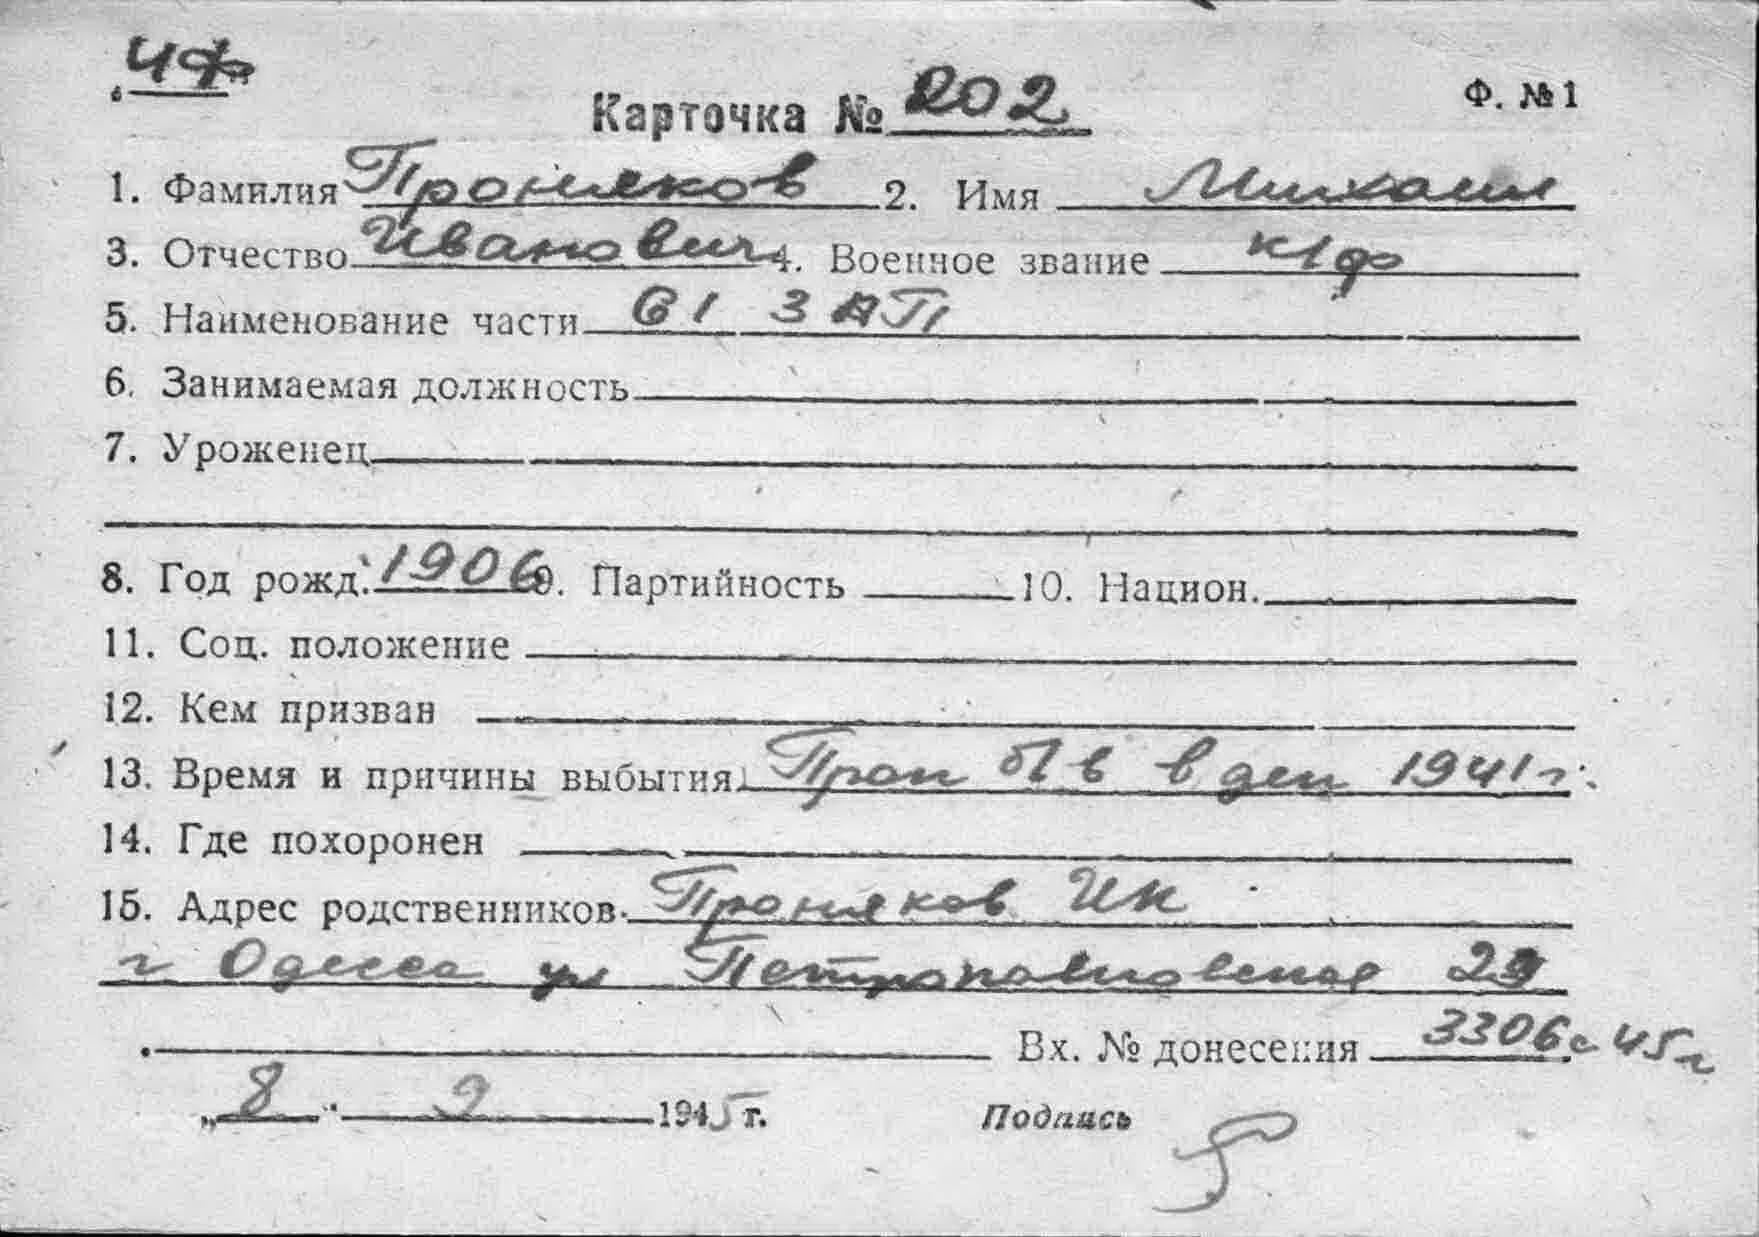 4ф
Карточка № 202 Ф. № 1
1. Фамилия Проняков 2. Имя Михаил
3. Отчество Иванович 4. Военное звание к/ф
5. Наименование части 61 ЗАП
6. Занимаемая должность
7. Уроженец
8. Год рожд. 1906 9. Партийность 10. Национ.
11. Соц. положение
12. Кем призван
13. Время и причины выбытия Проп б/в в дек 1941 г.
14. Где похоронен
15. Адрес родственников Проняков ИК
г Одесса ул Петропавловская
Вх. № донесения 3306с 45г
„8" 9 1945 г. Подпись